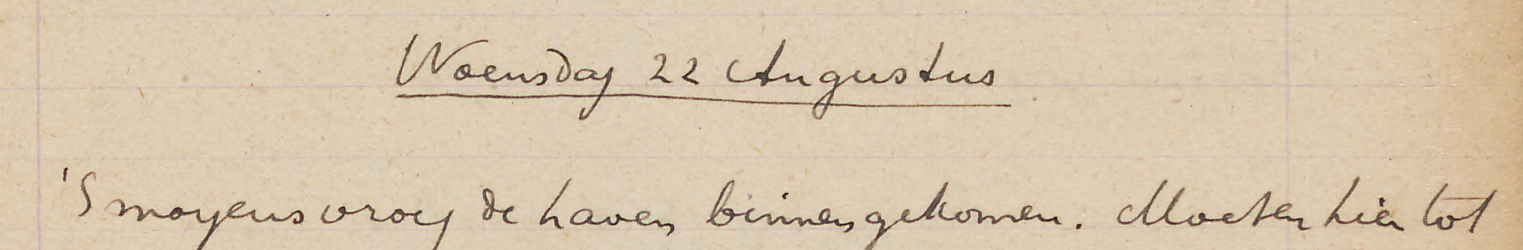 Woensdag 22 Augustus
'S morgens vroeg de haven binnengekomen. Moeten hier tot